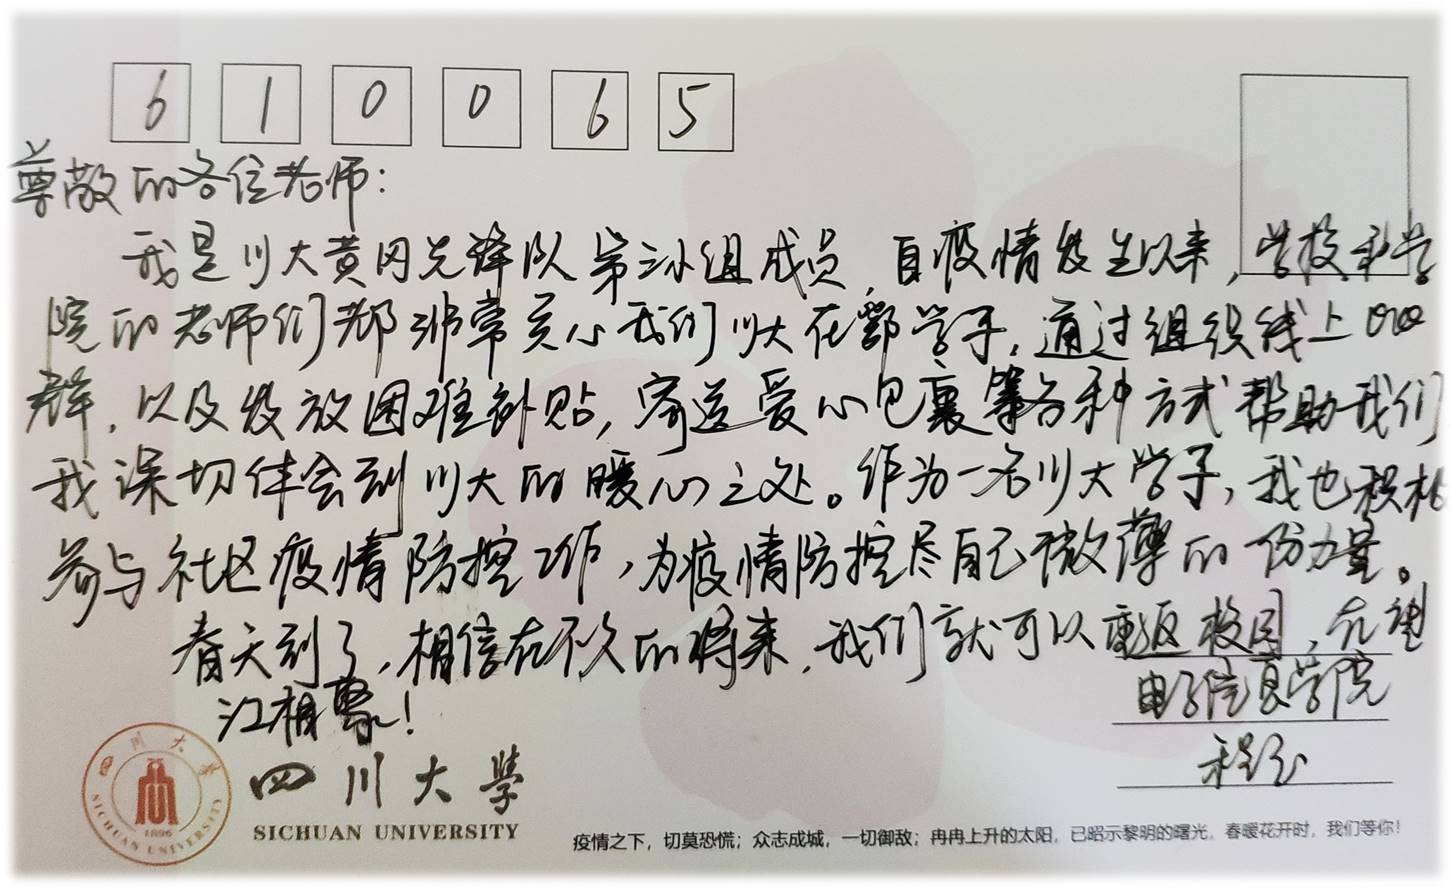 6 1 0 0 6 5
尊敬的各位老师：
我是川大黄冈先锋队第三小组成员，自疫情发生以来，学校和学
院的老师们都非常关心我们川大在鄂学子，通过组织线上QQ
群，以及发放困难补贴，寄送爱心包裹等各种方式帮助我们
我深切体会到川大的暖心之处。作为一名川大学子，我也积极
参与社区疫情防控工作，为疫情防控尽自己微薄的一份力量。
春天到了，相信在不久的将来，我们就可以重返校园，在望
江相聚！
电子信息学院
程
四川大学
SICHUAN UNIVERSITY
1896
四川大學
SICHUAN UNIVERSITY
疫情之下，切莫恐慌；众志成城，一切御敌；冉冉上升的太阳，已昭示黎明的曙光。春暖花开时，我们等你！